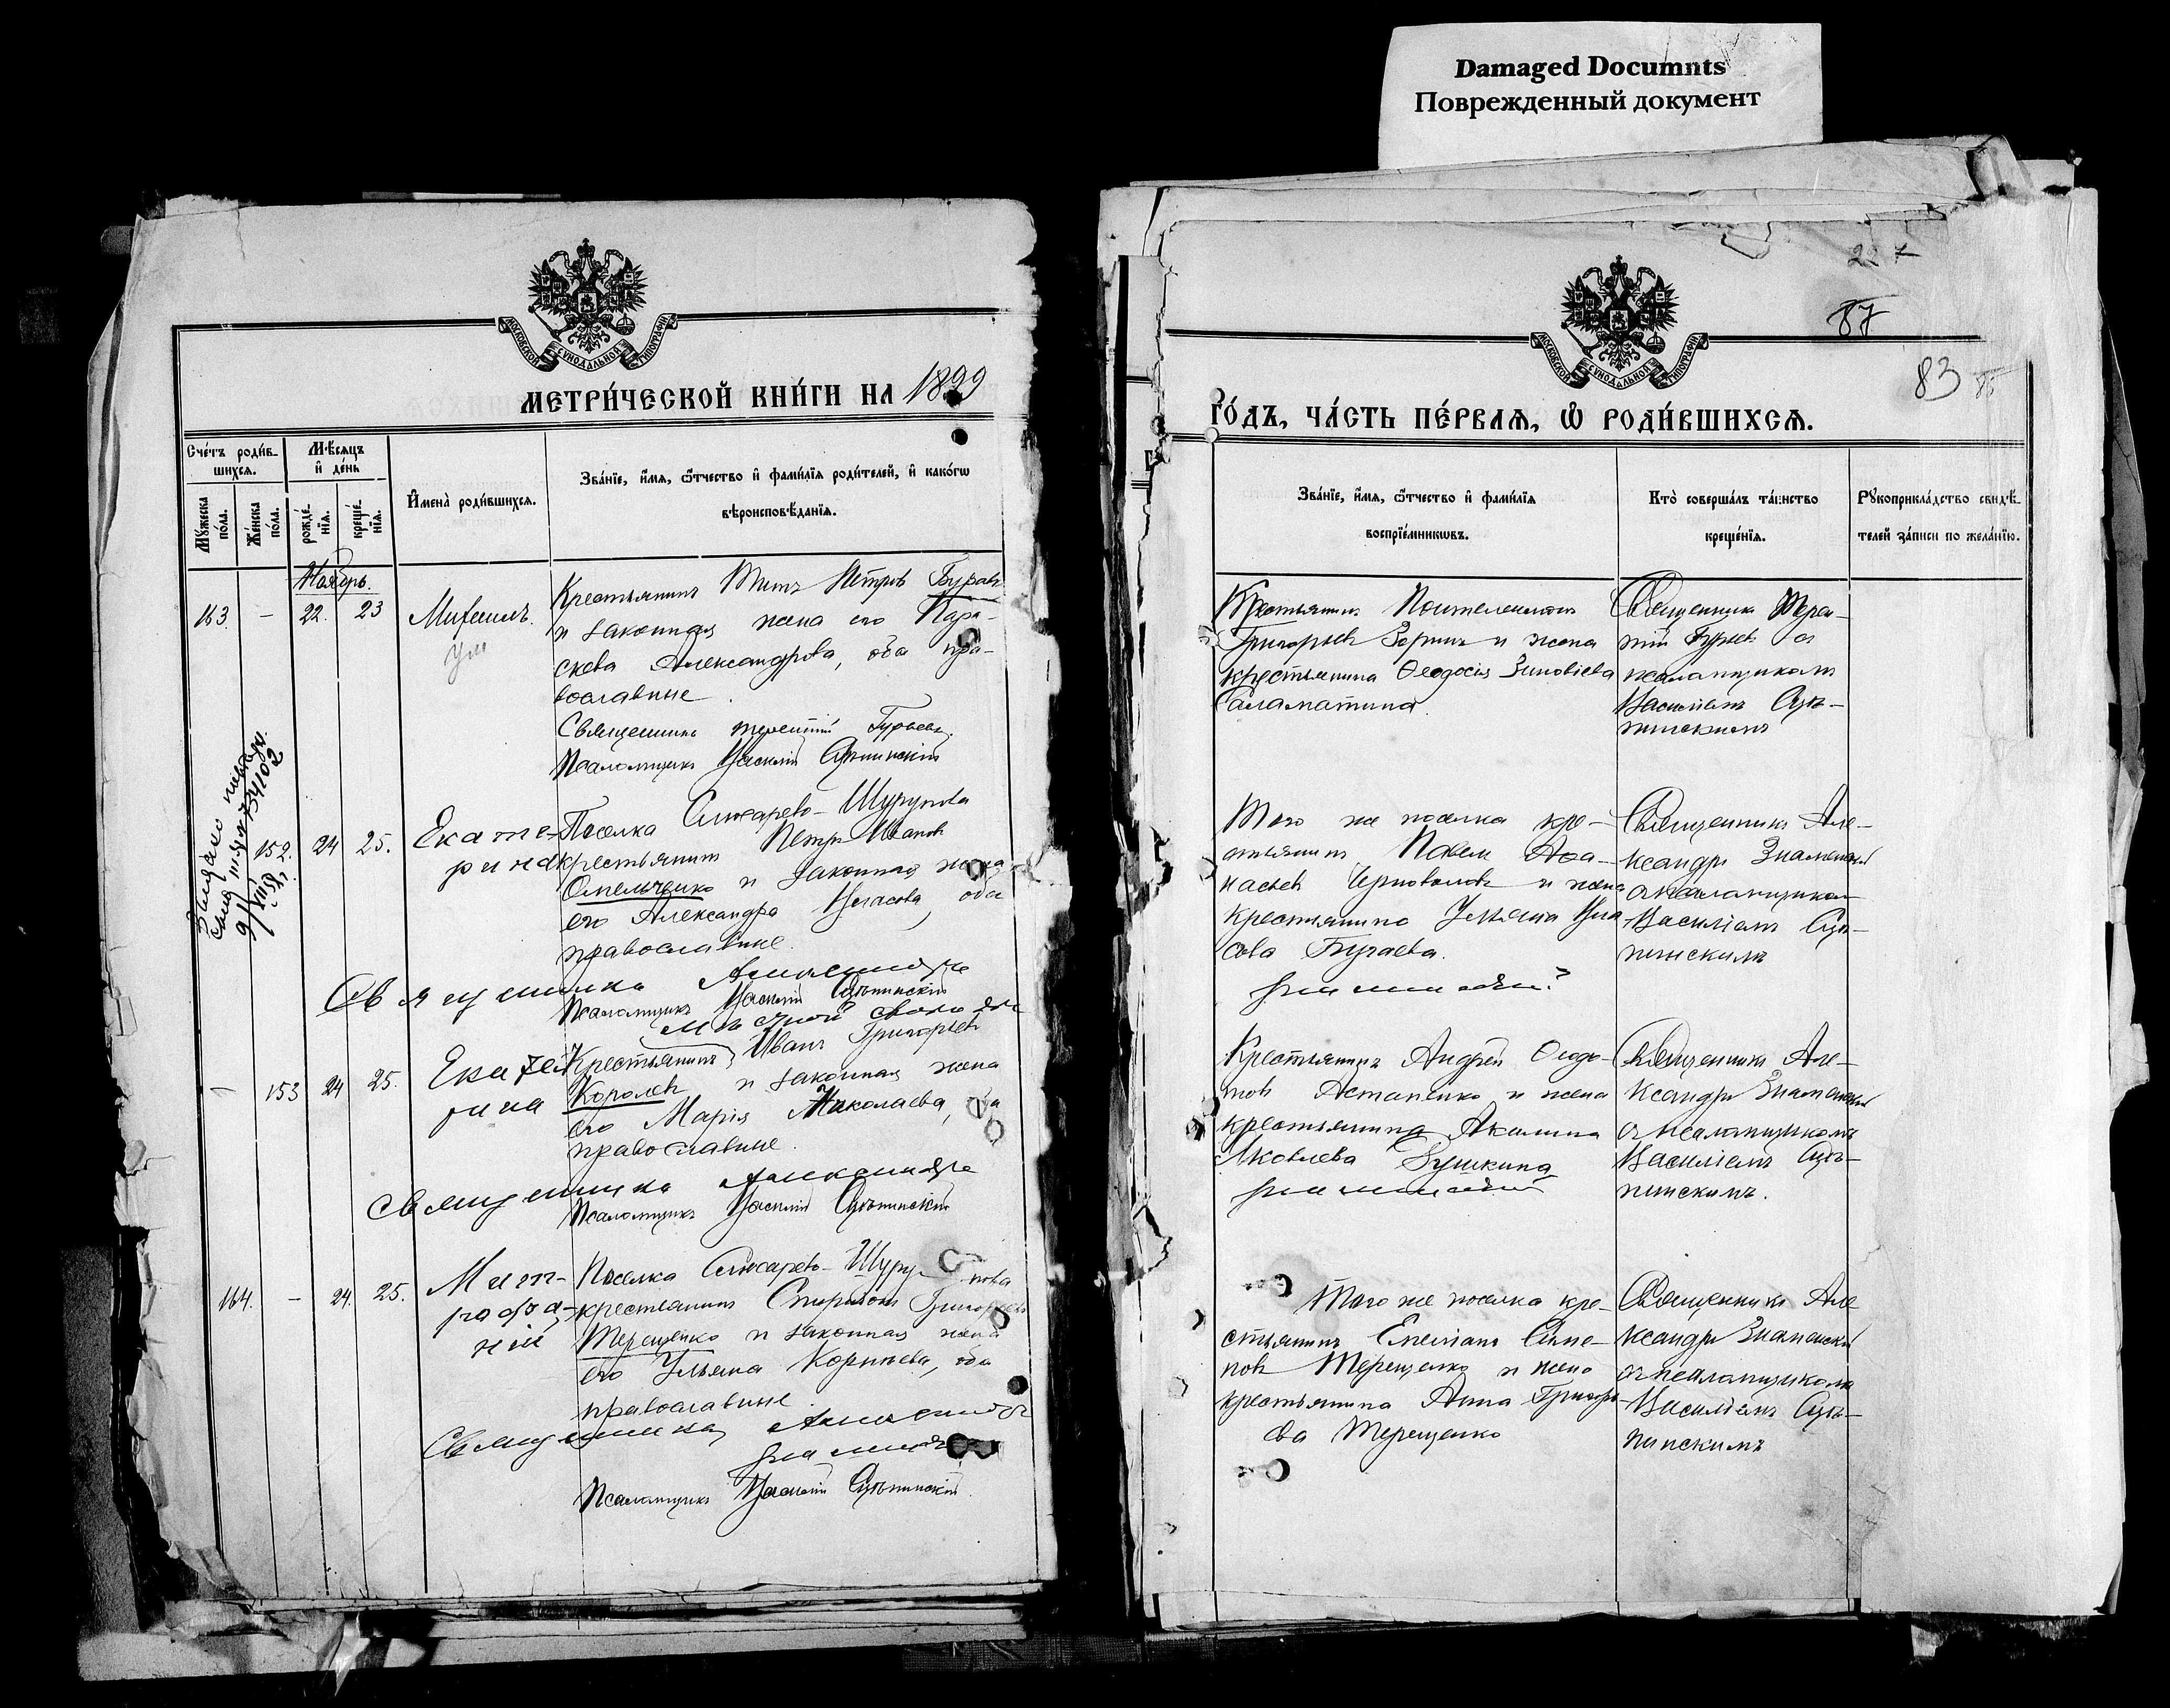 Damaged Documnts
Поврежденный документ
МОСКОВСКОЙ СѴНОДАЛЬНОЙ ТИПОГРАФІИ
МЕТРИ́ЧЕСКОЙ КНИ́ГИ НА 1899
Сче́тъ роди́в-
шихся.
Мѣ́сяцъ
и҆ де́нь
Мꙋ́жеска
по́ла.
Же́нска
по́ла.
рожде́-
нїѧ.
креще́-
нїѧ.
И҆мена̀ роди́вшихсѧ.
Зва́нїе, и҆́мѧ, ѻ҆́тчество и҆ фами́лїѧ роди́телей, и҆ како́гѡ
вѣроисповѣ́данїѧ.
Ноябрь.
163. – 22. 23 Михаилъ.
Крестьянинъ Титъ Петровъ
и законная жена его Пара-
скева Александрова, оба пра-
вославные.
Священникъ Терентій Гурьевъ.
Псаломщикъ Василій
152. 24 25. Екате-
рина
Поселка Слюсарево-Шурупова
крестьянинъ Петръ Ивановъ
Омельченко и законная жена
его Александра Власова, оба
православные.
Священникъ Александръ
Псаломщикъ Василій
– 153 24 25. Екате-
рина
Крестьянинъ Иванъ Григорьевъ
Королевъ и законная жена
его Марія Николаева, оба
православные.
Священникъ Александръ
Псаломщикъ Василій
164. – 24. 25. Мит-
рофа-
ній
Поселка Слюсарево-Шурупова
крестьянинъ Спиридонъ Григорьевъ
Терещенко и законная жена
его Ульяна Корнѣева, оба
православные.
Священникъ Александръ
Знаменскій
Псаломщикъ Василій
227
87
83 85
МОСКОВСКОЙ СѴНОДАЛЬНОЙ ТИПОГРАФІИ
ГО́ДЪ, ЧА́СТЬ ПЕ́РВАѦ, Ѡ҆ РОДИ́ВШИХСѦ.
Зва́нїе, и҆́мѧ, ѻ҆́тчество и҆ фами́лїѧ
воспрїе́мникѡвъ.
Кто̀ соверша́лъ та́инство
креще́нїѧ.
Рꙋкоприкла́дство свидѣ́-
телей за́писи по жела́нїю.
Крестьянинъ Пантелеимонъ
Григорьевъ Зоринъ и жена
крестьянина Ѳеодосія Зиновіева
Саламатина.
Священникъ Терен-
тій Гурьевъ съ
псаломщикомъ
Василіемъ
Того же поселка кре-
стьянинъ Павелъ Аѳа-
насьевъ Черноволовъ и жена
крестьянина Ульяна Вла-
сова Бугаева.
Знаменскій
Священникъ Але-
ксандръ Знаменскій
съ псаломщикомъ
Василіемъ
Крестьянинъ Андрей Ѳедо-
товъ Астапенко и жена
крестьянина Акилина
Яковлева
Знаменскій
Священникъ Але-
ксандръ Знаменскій
съ псаломщикомъ
Василіемъ
Того же поселка кре-
стьянинъ Емеліанъ
Терещенко и жена
крестьянина Анна Григорь-
ева Терещенко
Священникъ Але-
ксандръ Знаменскій
съ псаломщикомъ
Василіемъ